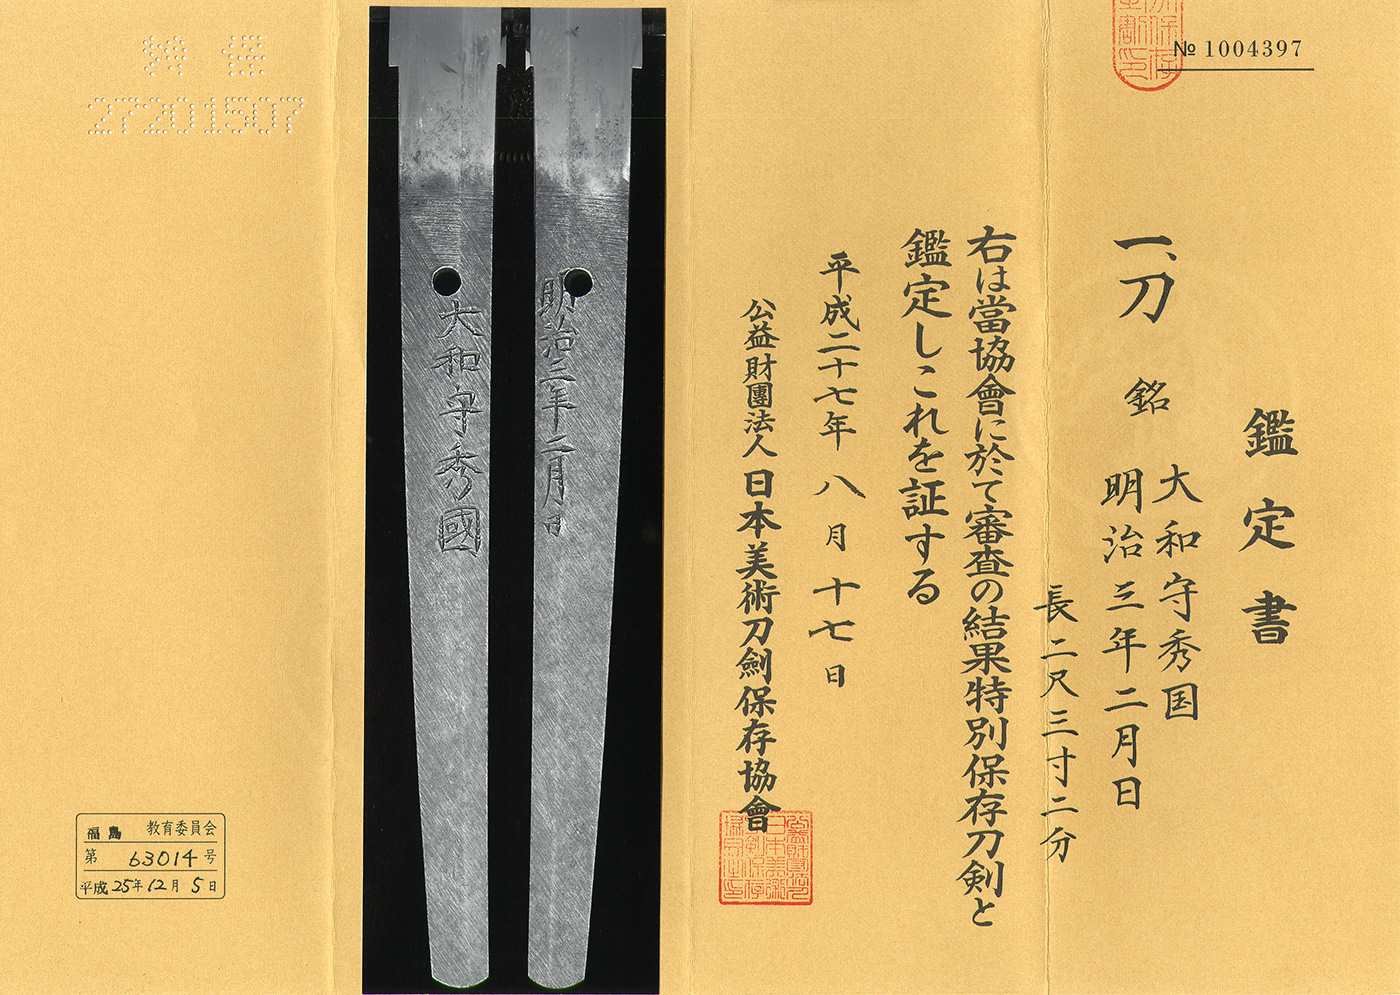 № 1004397
鑑定書
一、刀 銘 大和守秀国
明治三年二月日
長二尺三寸二分
右は當協會に於て審査の結果特別保存刀剣と
鑑定しこれを証する
平成二十七年八月十七日
公益財團法人日本美術刀劍保存協會
明治三年二月日
大和守秀國
27201507
福島 教育委員会
第 63014 号
平成 25年 12月 5日